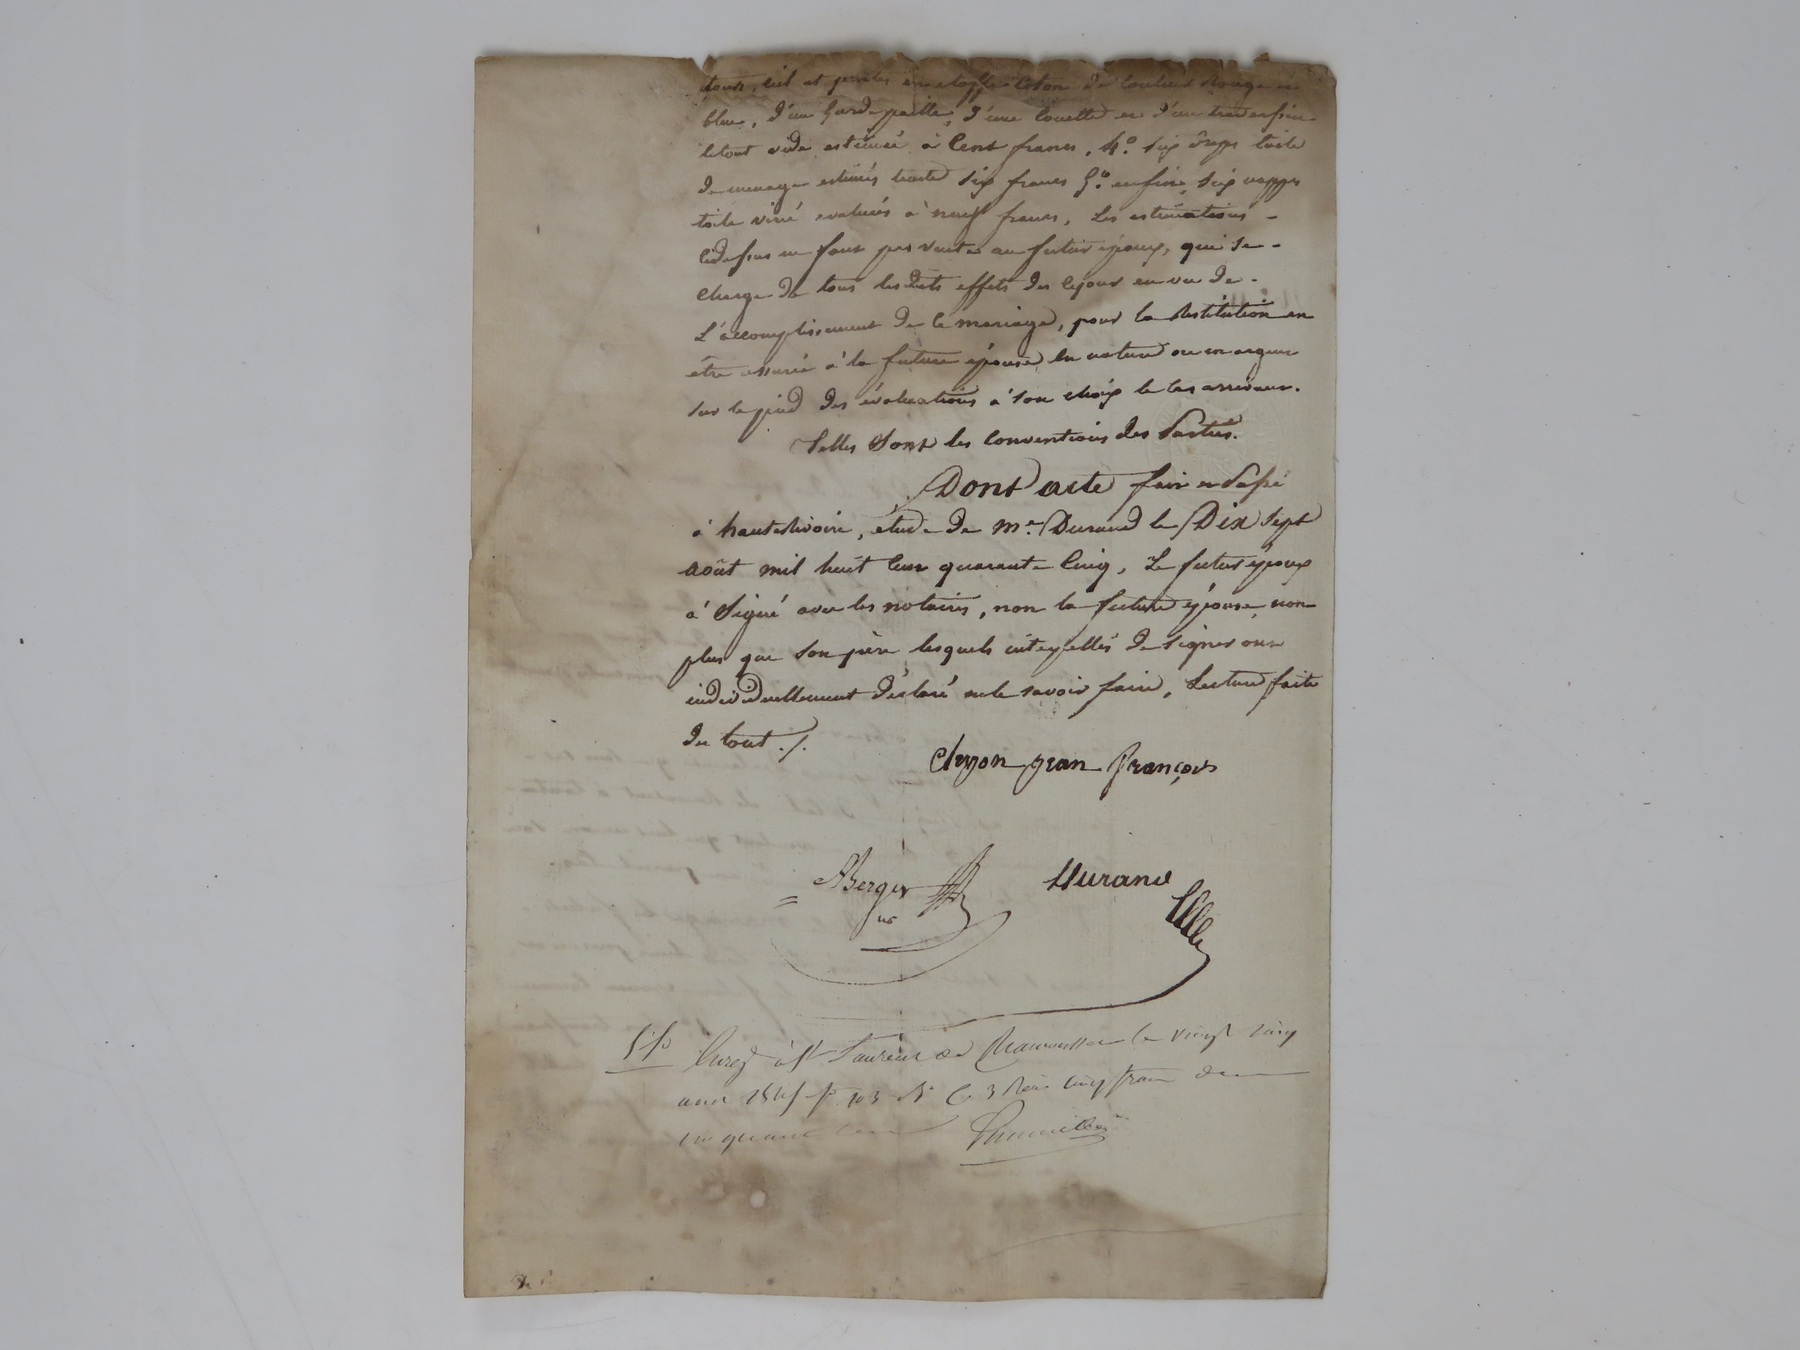 tour, ciel et pentes en etoffe coton de couleur rouge et
bleu, d'un garde paille, d'une couette et d'un traversin
le tout usé estimé à Cent francs, 4.° six draps toile
de menage estimés trente six francs 5.° enfin, six nappes
toile evalués à neuf francs, Les estimations -
cidessus ne font pas vente au futur époux, qui se -
Charge de tous lesdits effets des cejour en vu de -
L'accomplissement de ce mariage, pour la Restitution en
être assurée à la future épouse en nature ou en argent
sur le pied des évaluations à son choix le cas arrivant.
Telles Sont les Conventions des Parties.
Dont acte fait et Passé
à hauterivoire, étude de me. Durand le Dix Sept
Août mil huit Cent quarante Cinq, Le futur époux
à Signé avec les notaires, non la future épouse, non
plus que son père lesquels interpellés de signer ont
individuellement déclaré ne le savoir faire, Lecture faite
du tout ./.
Chyon jean François
Berger
nre
Durand
Enreg à St Laurent de Chamousset le vingt cinq
aout 1845 fo 103 Ro C 3 Reçu cinq francs
cinquante